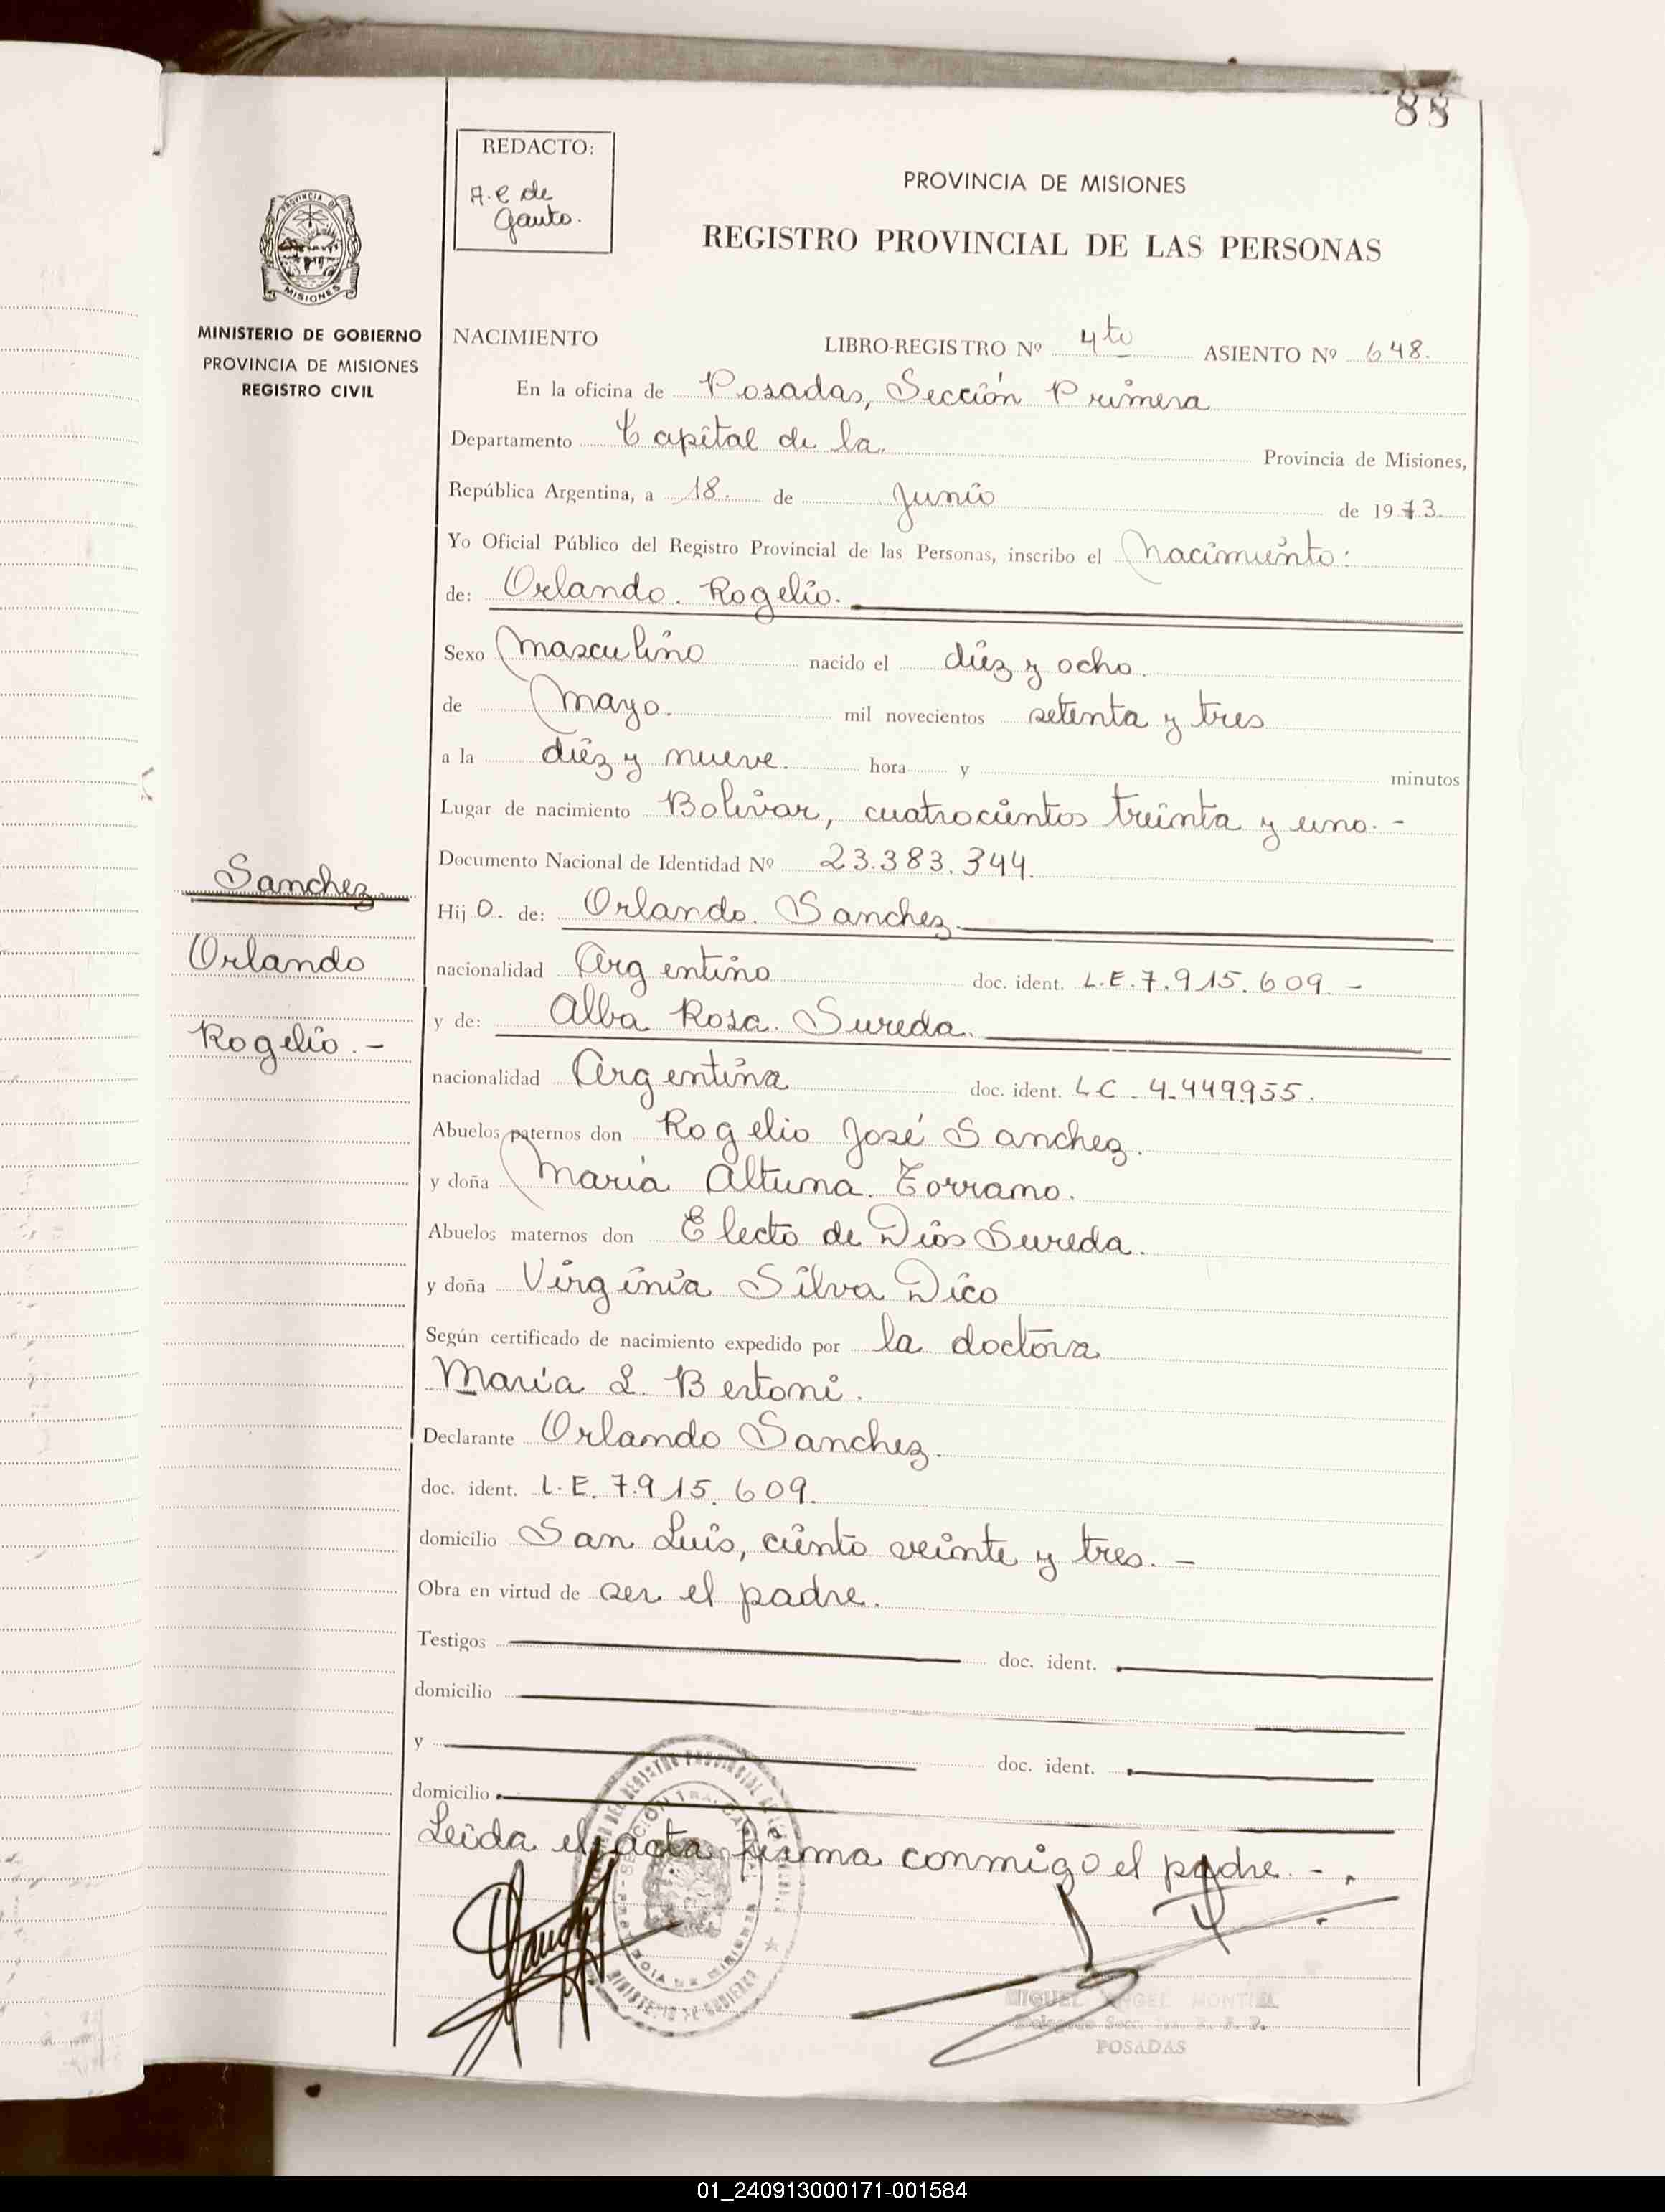 88
REDACTO:
A. e de
Gauto.
PROVINCIA DE MISIONES
REGISTRO PROVINCIAL DE LAS PERSONAS
PROVINCIA DE
MISIONES
MINISTERIO DE GOBIERNO
PROVINCIA DE MISIONES
REGISTRO CIVIL
NACIMIENTO LIBRO-REGISTRO Nº 4to ASIENTO Nº 648.
En la oficina de Posadas, Sección Primera
Departamento Capital de la. Provincia de Misiones,
República Argentina, a 18. de Junio de 1973.
Yo Oficial Público del Registro Provincial de las Personas, inscribo el Nacimiento:
de: Orlando. Rogelio.
Sexo masculino nacido el diez y ocho.
de mayo. mil novecientos setenta y tres
a la diez y nueve. hora y minutos
Lugar de nacimiento Bolivar, cuatrocientos treinta y uno. -
Documento Nacional de Identidad Nº 23.383.344.
Sanchez
Orlando
Rogelio. -
Hij o. de: Orlando. Sanchez
nacionalidad Argentino doc. ident. L.E. 7.915.609. -
y de: Alba Rosa. Sureda.
nacionalidad Argentina doc. ident. LC - 4.449955.
Abuelos paternos don Rogelio José Sanchez.
y doña María Altuna. Torrano.
Abuelos maternos don Electo de Dios Sureda.
y doña Virginia Silva Dico
Según certificado de nacimiento expedido por la doctora
María L. Bertoni.
Declarante Orlando Sanchez.
doc. ident. L.E. 7.915.609.
domicilio San Luis, ciento veinte y tres. -
Obra en virtud de ser el padre.
Testigos doc. ident.
domicilio
y doc. ident.
domicilio
Leida el acta firma conmigo el padre. -.
MIGUEL ANGEL MONTIEL
POSADAS
01_240913000171-001584